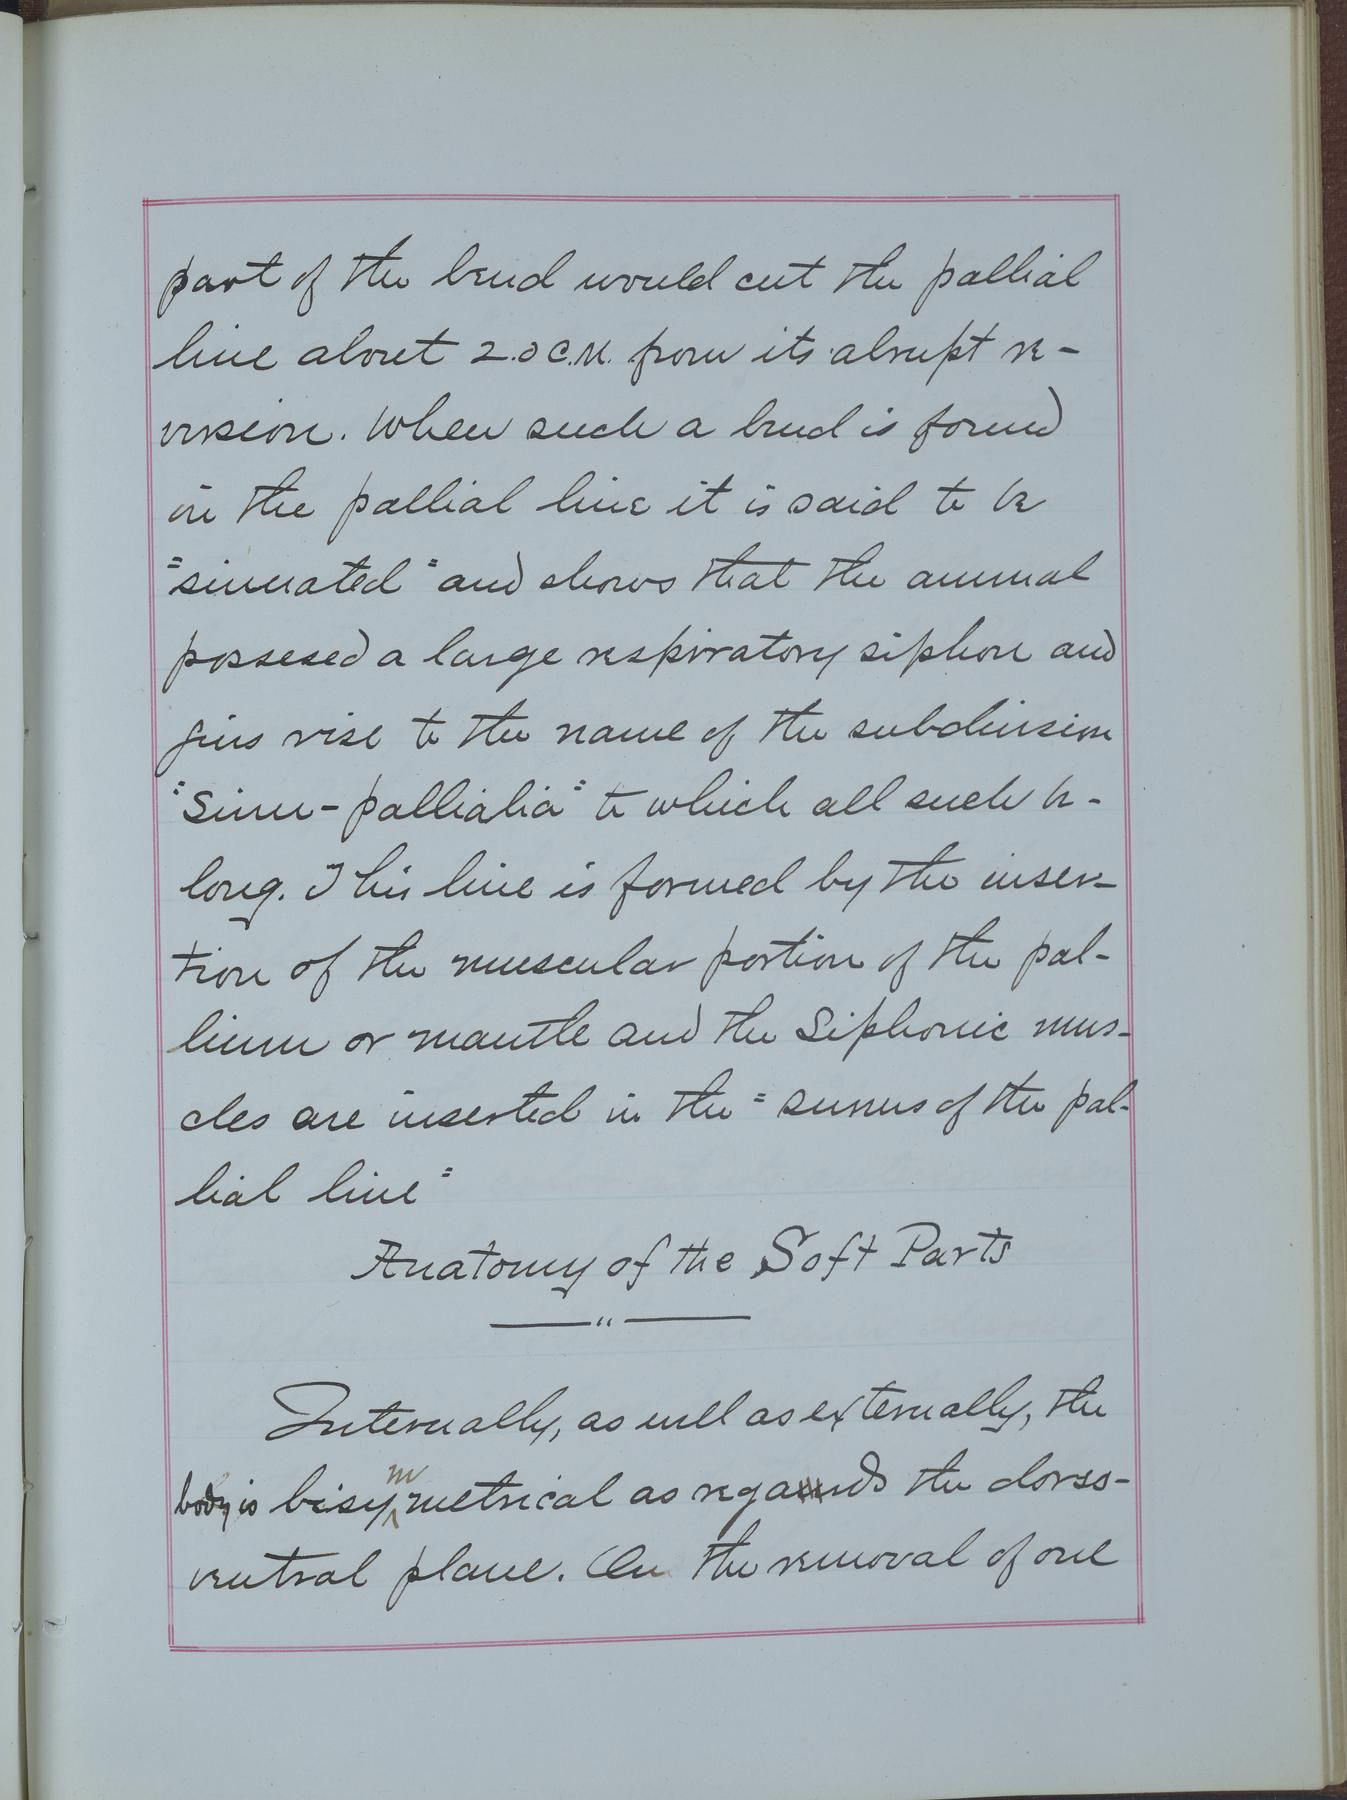 part of the bend would cut the pallial
line about 2.0 C.M. from its abrupt re-
version. When such a bend is found
in the pallial line it is said to be
"sinuated" and shows that the animal
possesed a large respiratory siphon and
gives rise to the name of the subdivision
"Sinu-pallialia" to which all such be-
long. This line is formed by the inser-
tion of the muscular portion of the pal-
lium or mantle and the Siphonic mus-
cles are inserted in the "sinus of the pal-
lial line"
Anatomy of the Soft Parts
Internally, as well as externally, the
body is bisymmetrical as regards the dorso-
ventral plane. On the removal of one